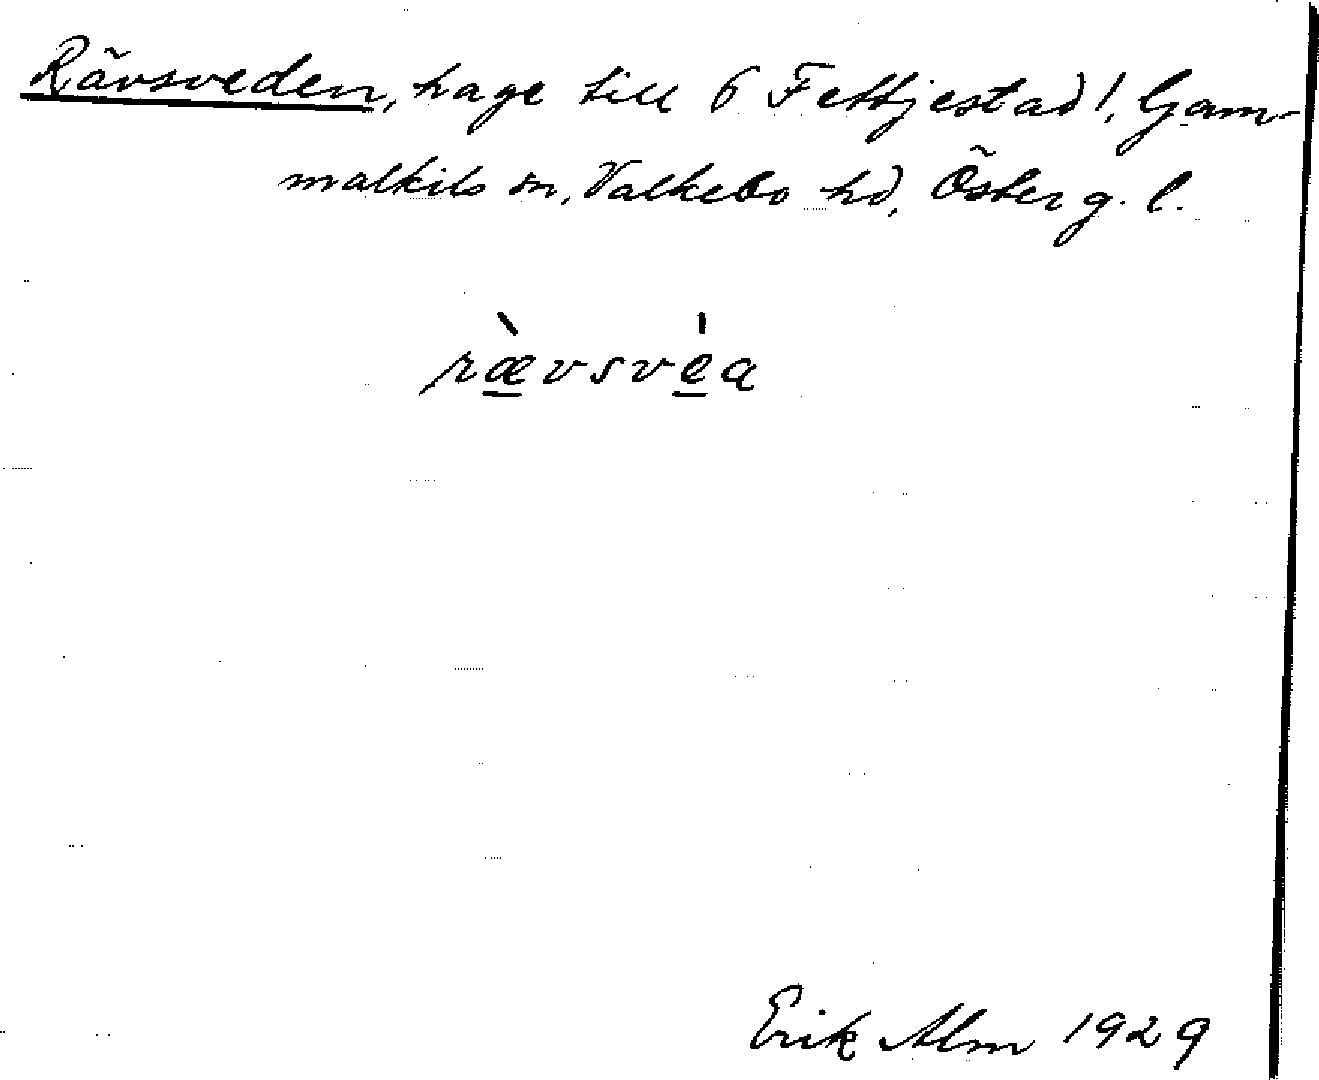 Rävsveden, hage till 6 Fettjestad!, Gam-
malkils sn, Valkebo hd, Österg. l.
ræ̀vsvèa
Erik Alm 1929